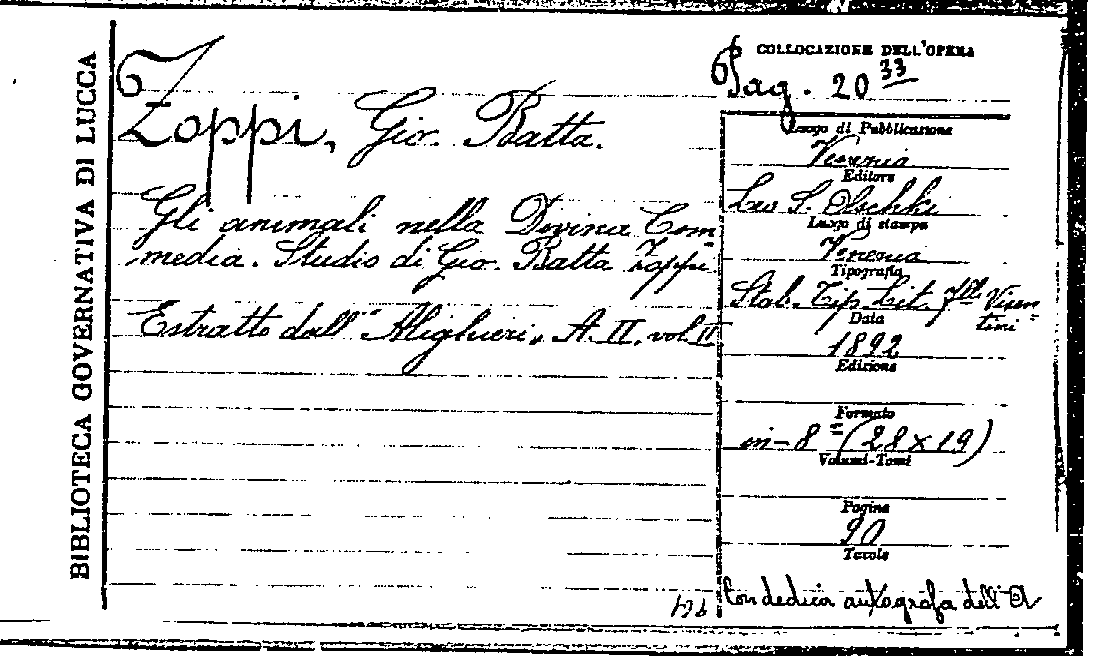 BIBLIOTECA GOVERNATIVA DI LUCCA
Zoppi, Gio. Batta.
Gli animali nella Divina Com
media. Studio di Gio. Batta Zoppi.
Estratto dall'"Alighieri", A. II. vol. II
COLLOCAZIONE DELL'OPERA
Pag. 20 33
Luogo di Pubblicazione
Venezia
Editore
Leo S. Olschki
Luogo di stampa
Venezia
Tipografia
Stab. Tip. Lit. flli Visen=
tini
Data
1892
Edizione
Formato
in-8º (28x19)
Volumi-Tomi
Pagine
90
Tavole
Con dedica autografa dell'A